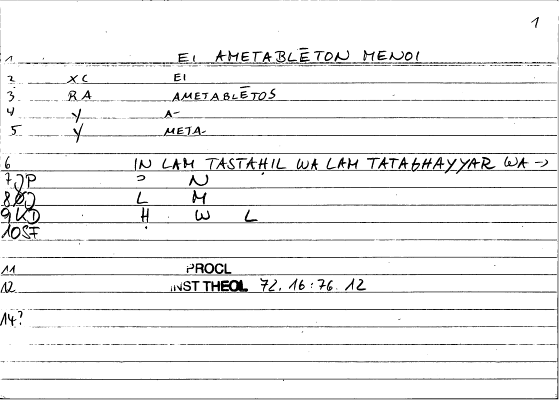 1
1 EI AMETABLĒTON MENOI
2 XC EI
3 RA AMETABLĒTOS
4 Y A-
5 Y META-
6 IN LAM TASTAḤIL WA LAM TATAGHAYYAR WA →
7 JP ɔ N
8 L M
9 KD Ḥ W L
10 SF
11 PROCL
12 INST THEOL 72. 16:76. 12
14?